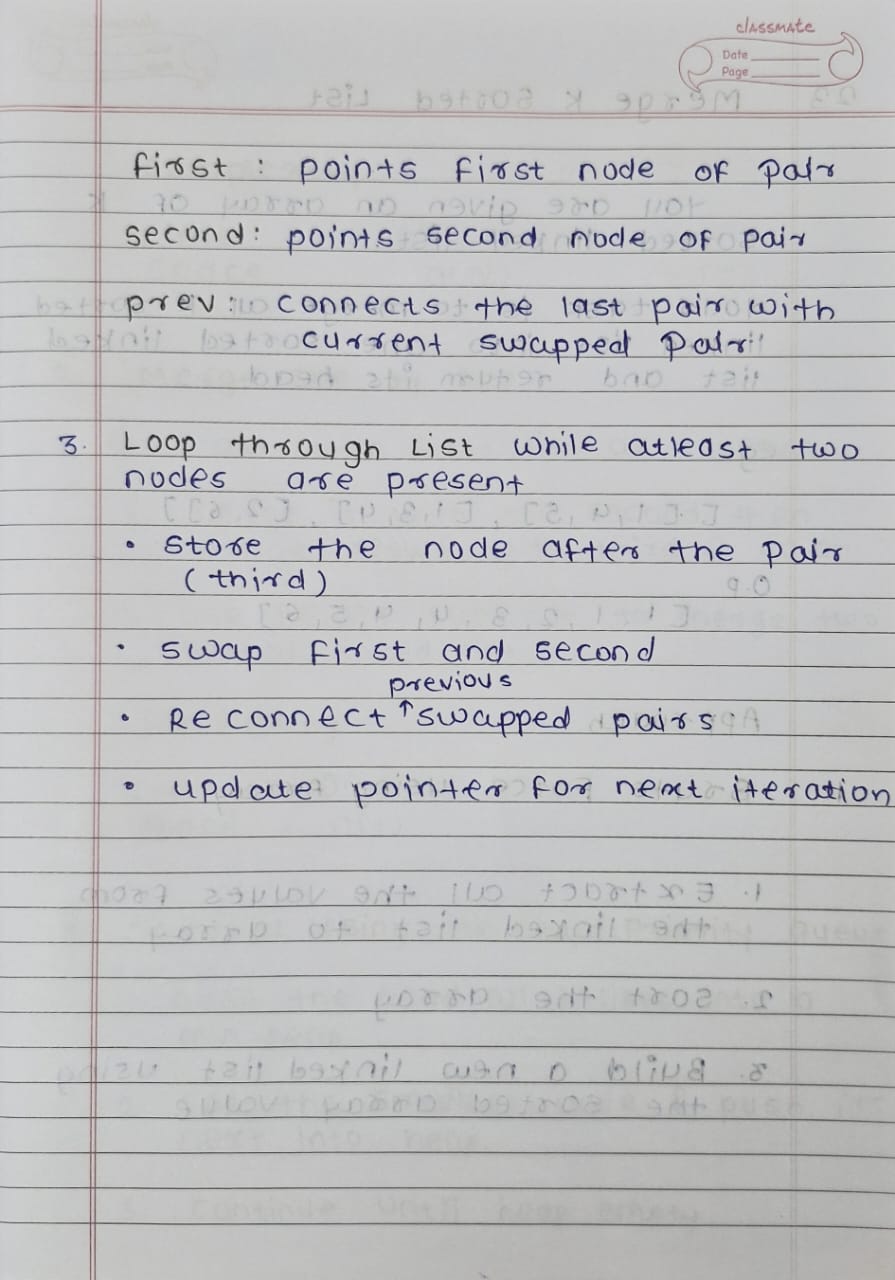 classmate
Date
Page
first : points first node of pair
second : points second node of pair
prev : connects the last pair with
current swapped pair
3. Loop through List while atleast two
nodes are present
• Store the node after the pair
(third)
• swap first and second
previous
• Reconnect ↑ swapped pairs
• update pointer for next iteration